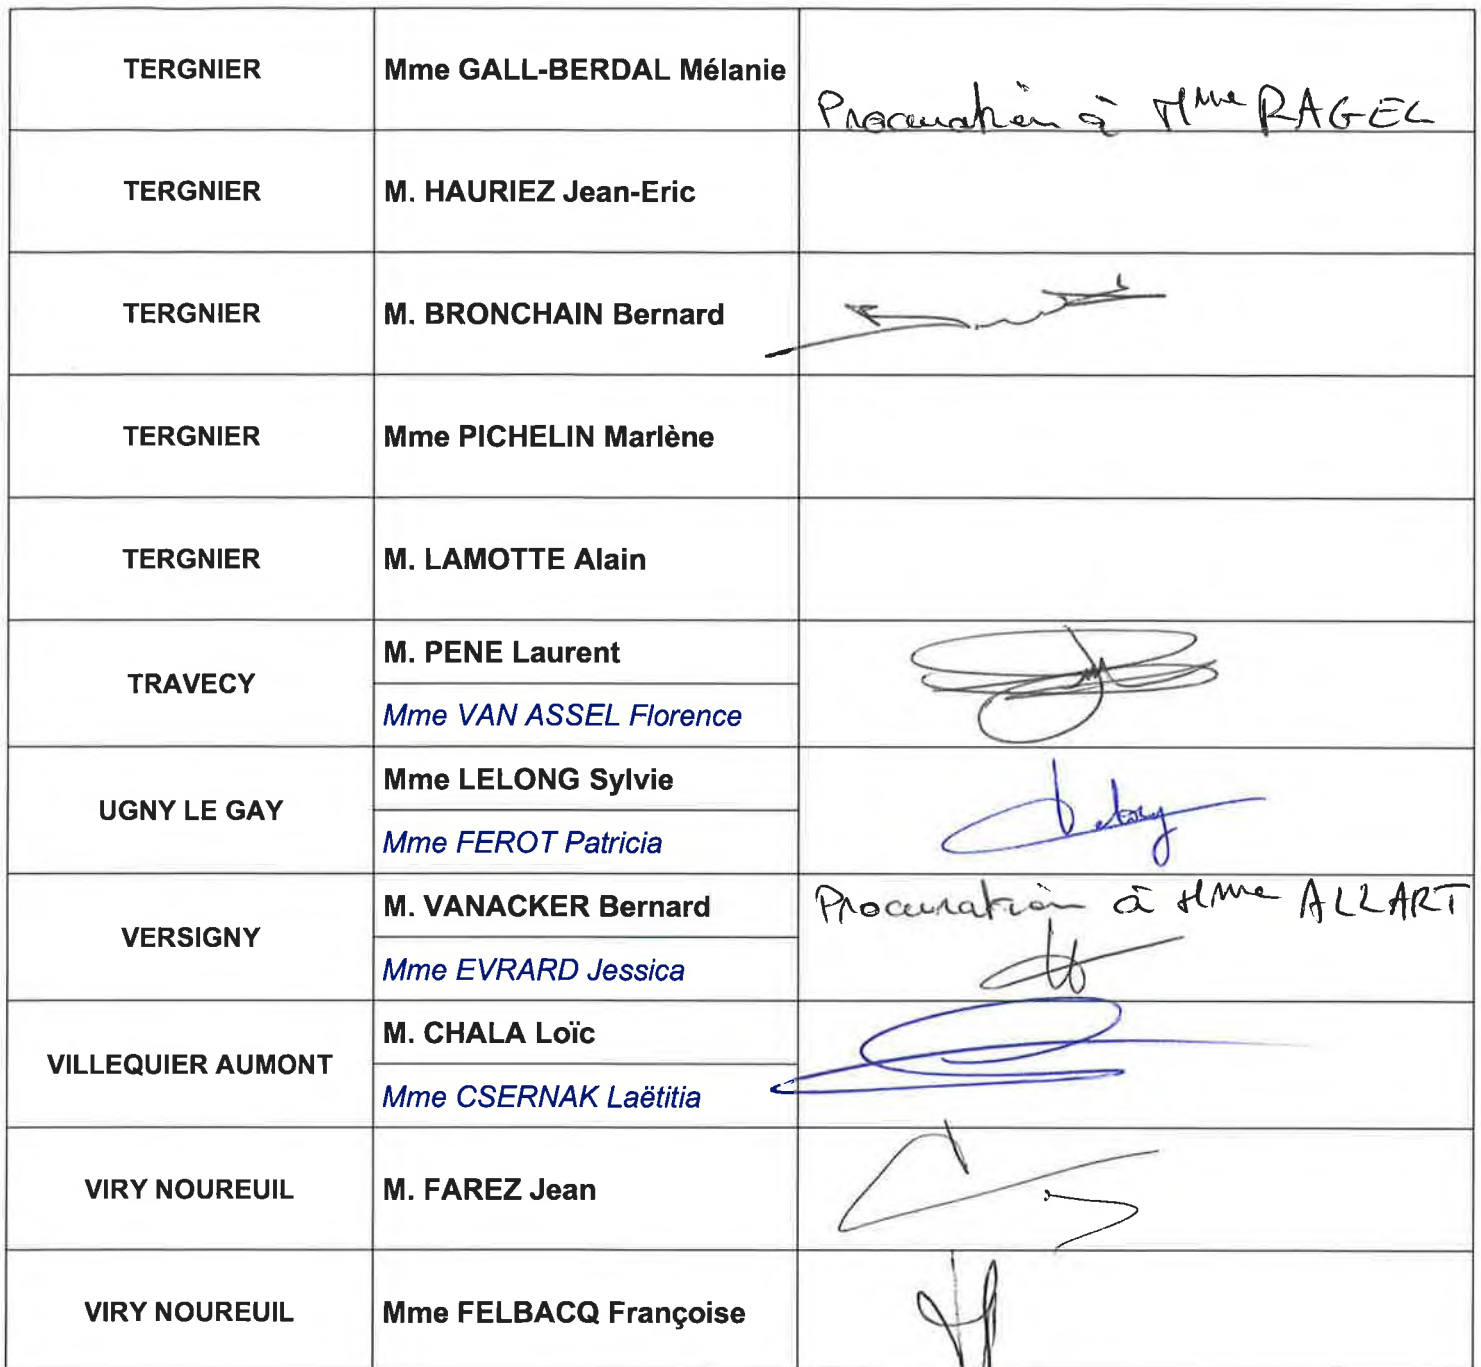 TERGNIER
Mme GALL-BERDAL Mélanie
Procuration à Mme RAGEL
TERGNIER
M. HAURIEZ Jean-Eric
TERGNIER
M. BRONCHAIN Bernard
TERGNIER
Mme PICHELIN Marlène
TERGNIER
M. LAMOTTE Alain
TRAVECY
M. PENE Laurent
Mme VAN ASSEL Florence
UGNY LE GAY
Mme LELONG Sylvie
Mme FEROT Patricia
VERSIGNY
M. VANACKER Bernard
Procuration à Mme ALLART
Mme EVRARD Jessica
VILLEQUIER AUMONT
M. CHALA Loïc
Mme CSERNAK Laëtitia
VIRY NOUREUIL
M. FAREZ Jean
VIRY NOUREUIL
Mme FELBACQ Françoise